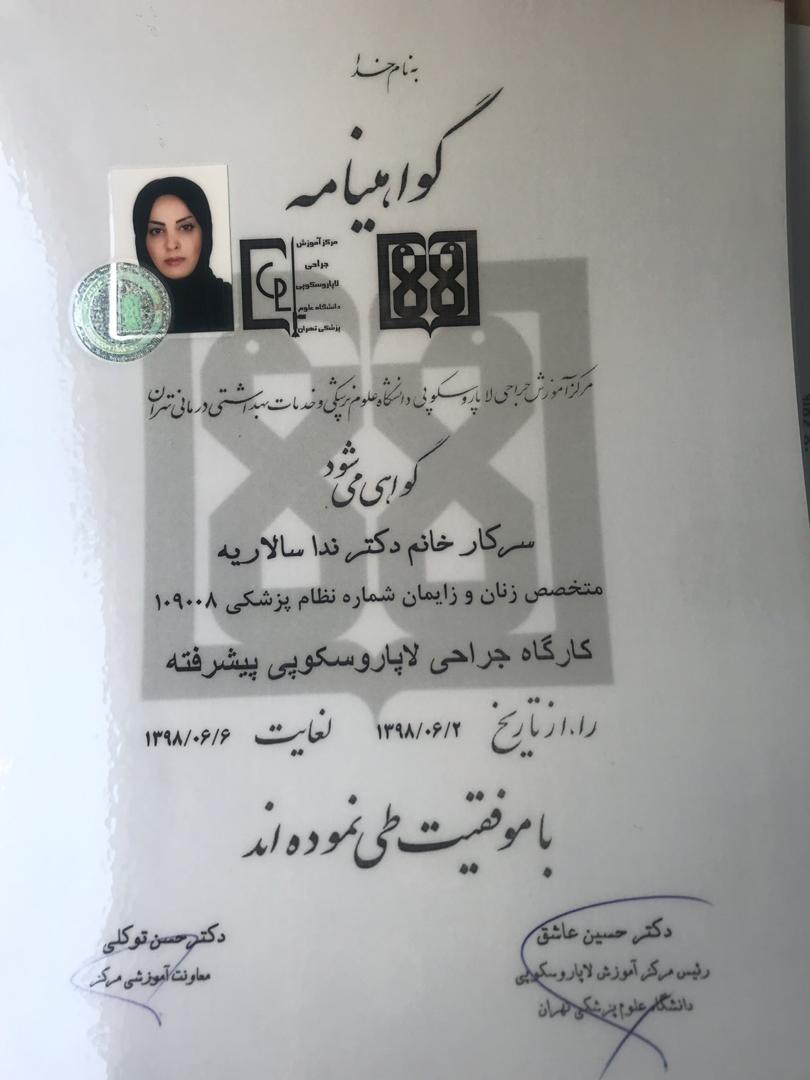 به نام خدا
گواهینامه
مرکز آموزش
جراحی
لاپاروسکوپی
دانشگاه علوم
پزشکی تهران
مرکز آموزش جراحی لاپاروسکوپی دانشگاه علوم پزشکی و خدمات بهداشتی درمانی تهران
گواهی می شود
سرکار خانم دکتر ندا سالاریه
متخصص زنان و زایمان شماره نظام پزشکی ۱۰۹۰۰۸
کارگاه جراحی لاپاروسکوپی پیشرفته
را، از تاریخ ۱۳۹۸/۰۶/۲ لغایت ۱۳۹۸/۰۶/۶
با موفقیت طی نموده اند
دکتر حسین عاشق
رئیس مرکز آموزش لاپاروسکوپی
دانشگاه علوم پزشکی تهران
دکتر حسن توکلی
معاونت آموزشی مرکز